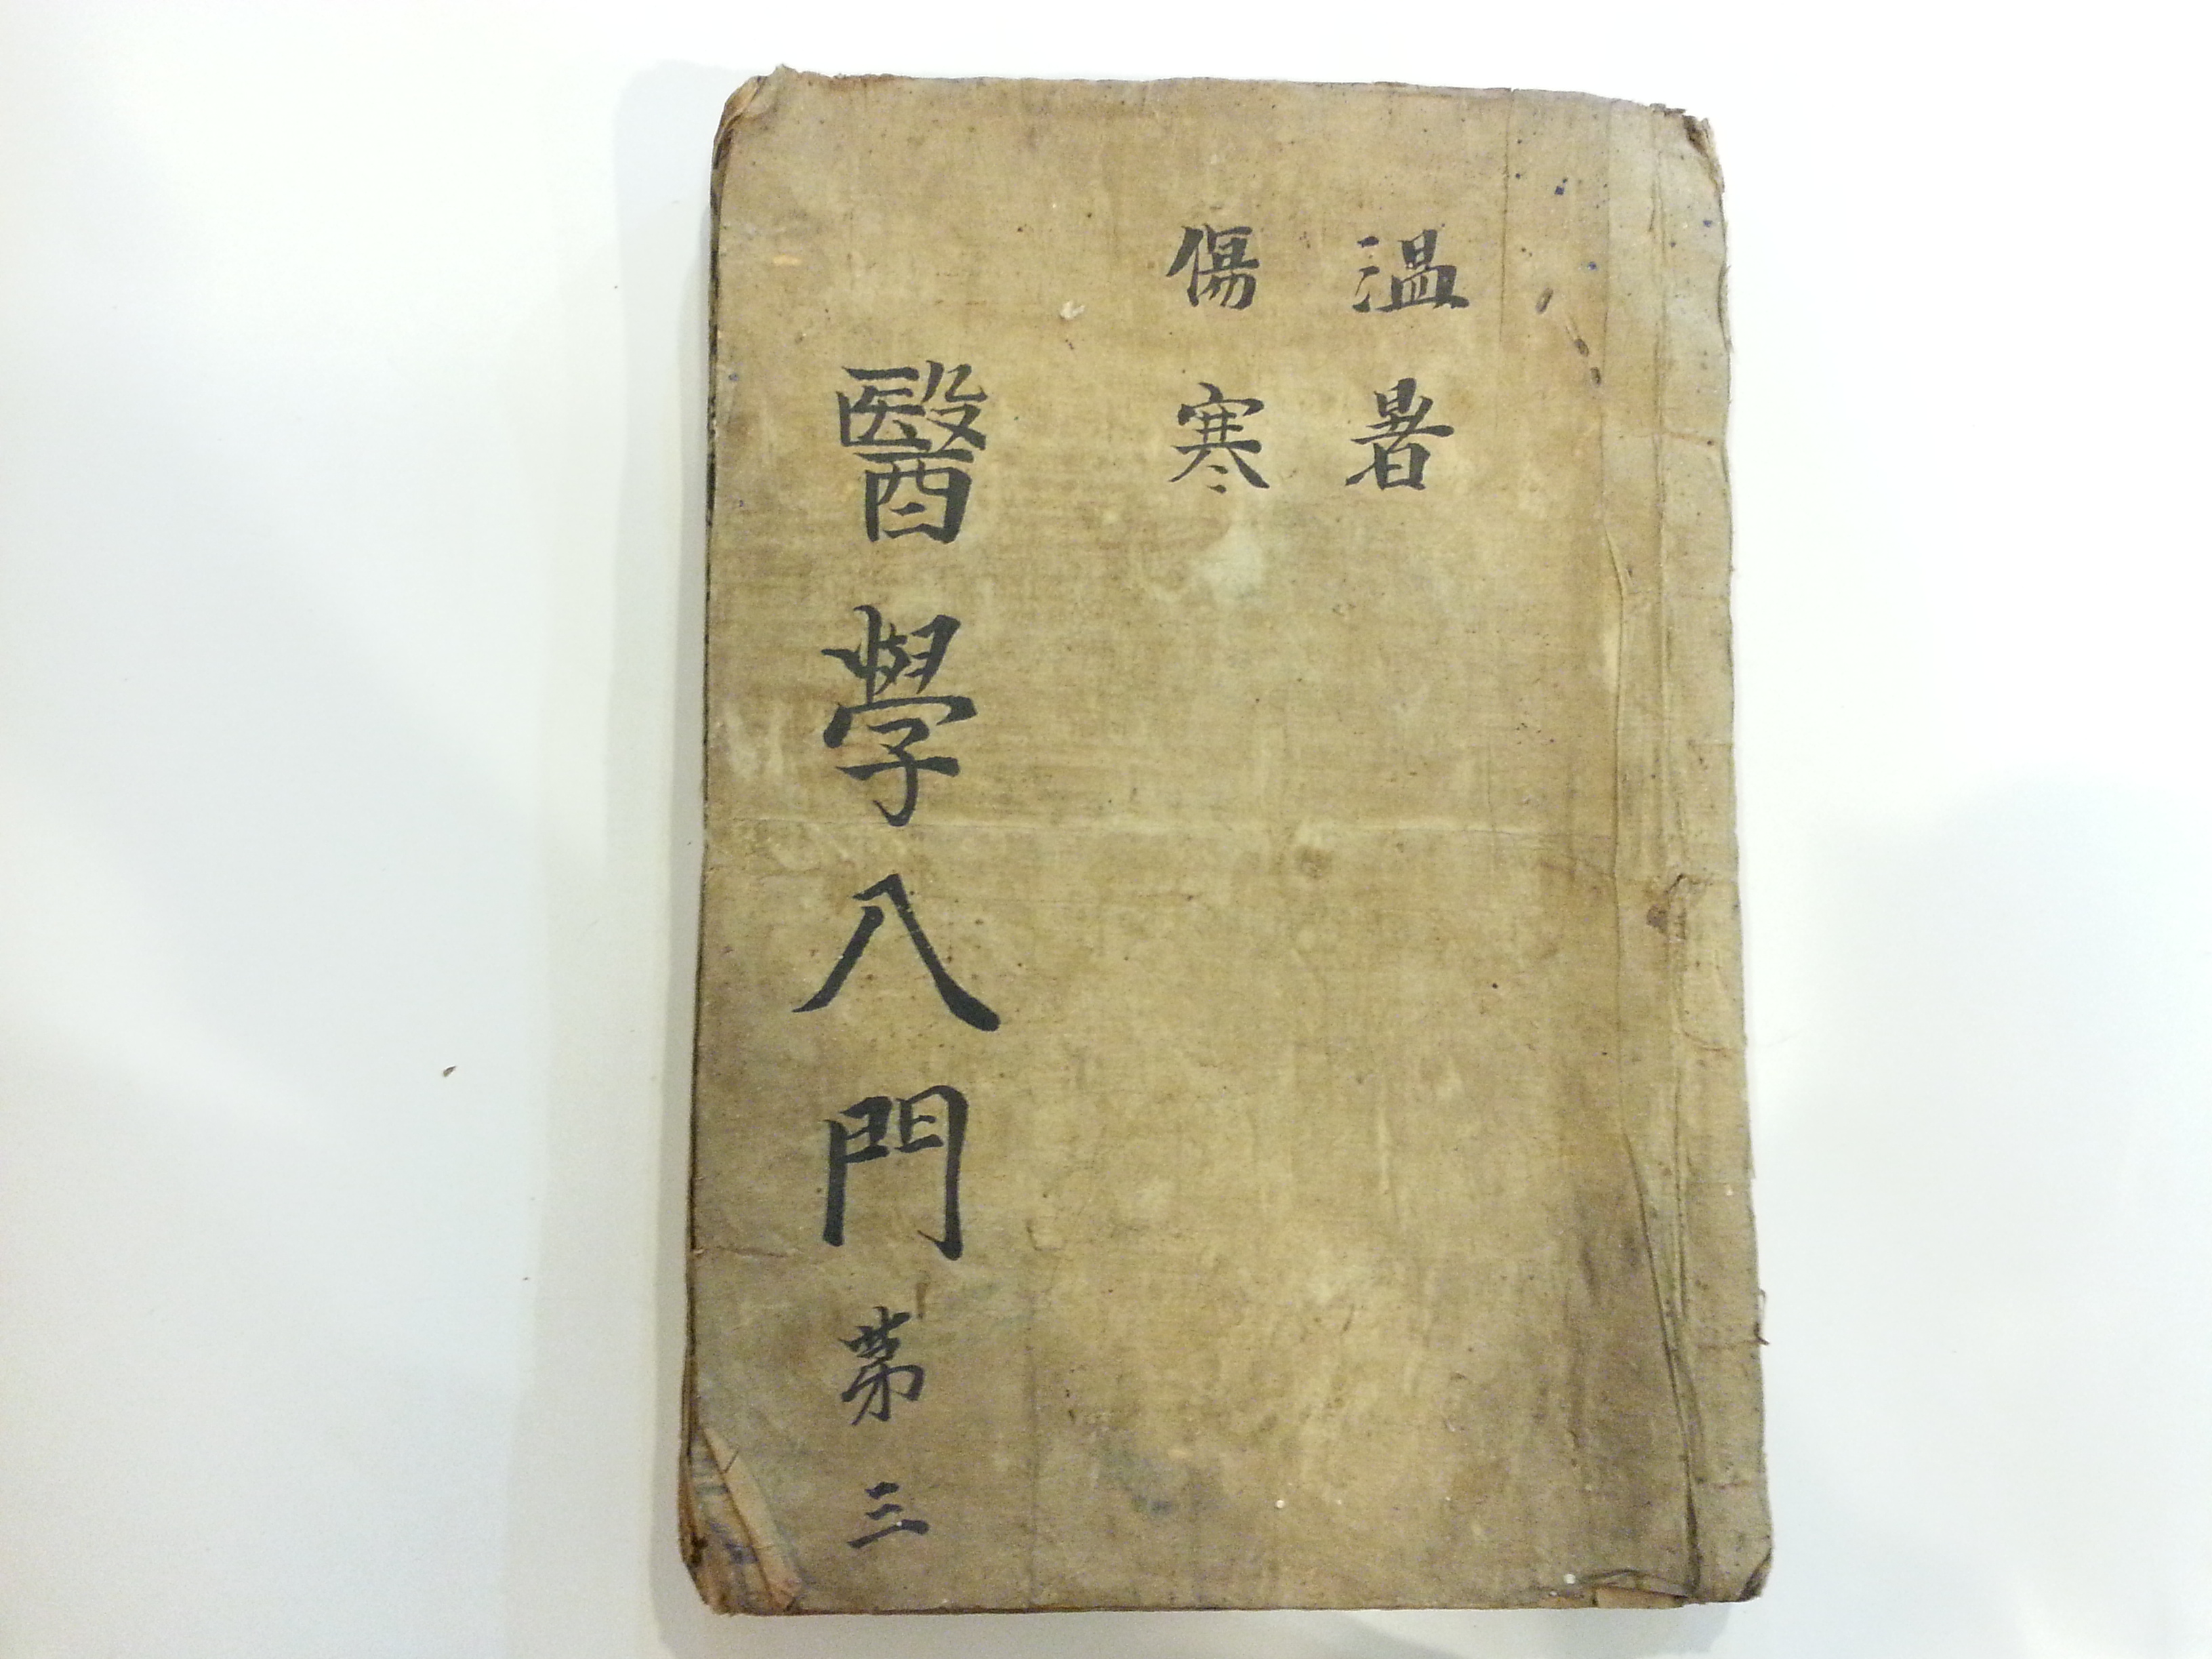 温暑
傷寒
醫學入門 第三